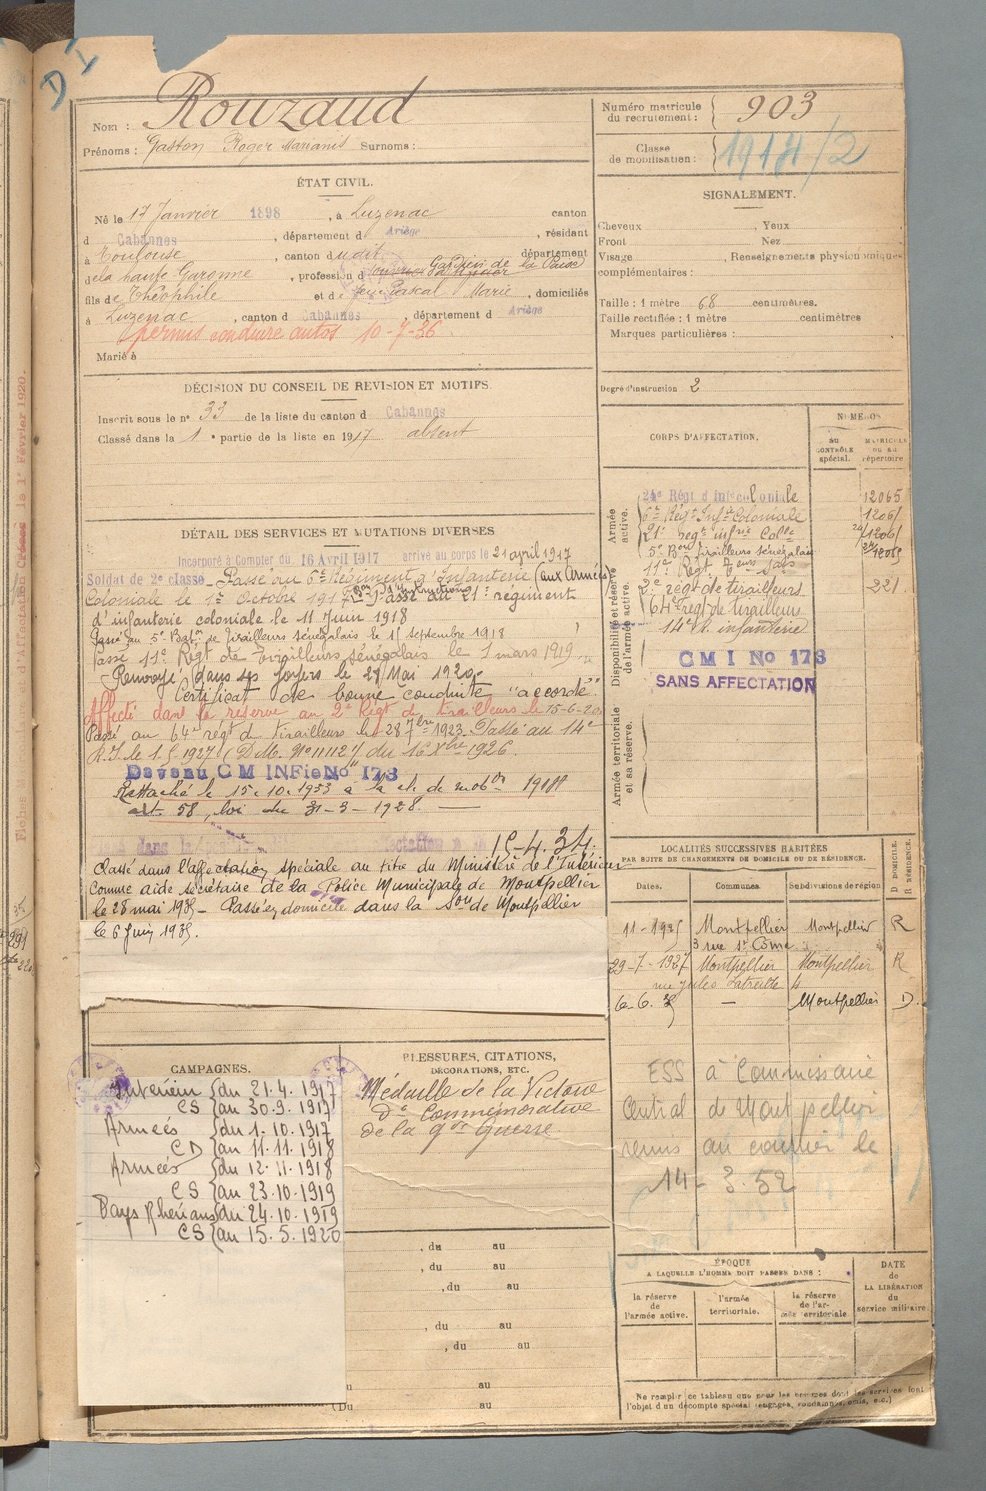 D I
Nom : Rouzaud
Prénoms : Gaston Roger Surnoms :
Numéro matricule du recrutement : 903
Classe de mobilisation :
ÉTAT CIVIL.
Né le 17 Janvier 1898, à Luzenac canton
d Cabannes, département d Ariège, résidant
à Toulouse, canton dudit département
de la haute Garonne, profession d Gardien de la Paix
fils de Théophile et de Marie, domiciliés
à Luzenac, canton d Cabannes, département d Ariège
permis conduire autos 10-7-36
Marié à
SIGNALEMENT.
Cheveux , Yeux
Front , Nez
Visage , Renseignements physionomiques
complémentaires :
Taille : 1 mètre 68 centimètres.
Taille rectifiée : 1 mètre centimètres
Marques particulières :
Degré d'instruction 2
DÉCISION DU CONSEIL DE REVISION ET MOTIFS.
Inscrit sous le n° 33 de la liste du canton d Cabannes
Classé dans la 1e partie de la liste en 1917 absent
DÉTAIL DES SERVICES ET MUTATIONS DIVERSES
Incorporé à Compter du 16 Avril 1917 arrivé au corps le 21 april 1917
Soldat de 2e classe - Passé au 6e Régiment d'Infanterie (aux Armées
Coloniale le 1er Octobre 1917 Passé au 21e régiment
d'infanterie coloniale le 11 Juin 1918
Passé au 5e Batn de Tirailleurs sénégalais le 15 septembre 1918
Passé 11e Régt de Tirailleurs sénégalais le 1 mars 1919
Renvoyé dans ses foyers le 29 Mai 1920.
Certificat de bonne conduite "accordé"
Affecté dans la réserve au 2e Régt de tirailleurs le 15-6-20
Passé au 64e régt de tirailleurs le 28 7bre 1923. Passé au 14e
R.I. le 1.5.1927 (D.M. N° 11112 du 16 Xbre 1926.
Devenu C M INFie No 173
Rattaché le 15.10.1933 à la cl. de mobon
art. 58, loi du 31-3-1928.
15-4.34.
Classé dans l'affectation spéciale au titre du Ministère de l'Intérieur
Comme aide secrétaire de la Police Municipale de Montpellier
le 28 mai 1935 - Passé en domicile dans la Son de Montpellier
le 6 Juin 1935.
CORPS D'AFFECTATION.
NUMÉROS
AU CONTRÔLE spécial.
MATRICULE OU AU répertoire.
Armée active.
24e Régt d'inf coloniale 12065
6e Régt Infie Coloniale 1206
21e regt infie Colle 1206
5e Bon Tirailleurs sénégalais
11e Régt
2e régt de tirailleurs 221
64e régt de tirailleurs
14e R. infanterie
Disponibilité et réserve de l'armée active.
C M I No 173
SANS AFFECTATION
Armée territoriale et sa réserve.
LOCALITÉS SUCCESSIVES HABITÉES
PAR SUITE DE CHANGEMENTS DE DOMICILE OU DE RÉSIDENCE.
Dates. Communes. Subdivisions de région D. DOMICILE. R. RÉSIDENCE.
Montpellier Montpellier R
3 rue St Côme
29-7-1927 Montpellier Montpellier R
rue Jules Latreille 4
6-6-35 — Montpellier D.
ESS à Commissaire
Central de Montpellier
remis au courrier le
14-3.52
CAMPAGNES.
Intérieur du 21.4.1917
CS au 30.9.1917
Armées du 1.10.1917
CD au 11.11.1918
Armées du 12.11.1918
CS au 23.10.1919
Pays Rhénans du 24.10.1919
CS au 15.5.1920
BLESSURES, CITATIONS,
DÉCORATIONS, ETC.
Médaille de la Victoire
do Commémorative
de la gde guerre
, du au
, du au
, du au
, du au
, du au
du au
(Du au
ÉPOQUE
A LAQUELLE L'HOMME DOIT PASSER DANS :
la réserve de l'armée active.
l'armée territoriale.
la réserve de l'armée territoriale
DATE de LA LIBÉRATION du service militaire
Ne remplir ce tableau que pour les hommes dont les services font
l'objet d'un décompte spécial (engagés, condamnés, omis, etc.)